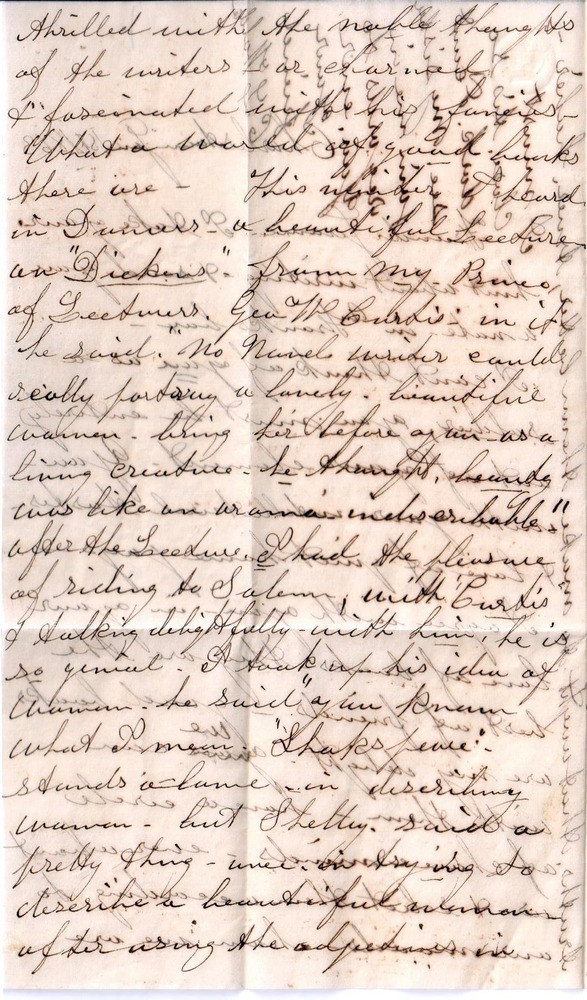 thrilled with the noble thoughts
of the writers - or charmed
& fascinated with his fancies -
What a world of good books
there are - This winter I heard
in Danvers a beautiful Lecture
on "Dickens" from my Prince
of Lecturers. Geo W Curtis - in it
he said. "No Novel writer could
really portray a lovely. beautiful
woman - bring her before you as a
living creature - he thought, beauty
was like an aroma indescribable."
after the Lecture. I had the pleasure
of riding to Salem, with Curtis
& talking delightfully - with him, he is
so genial. I took up his idea of
woman. he said "you know
what I mean. "Shakspeare" -
stands alone - in describing
woman - but Shelley. said a
pretty thing - once. in trying to
describe a beautiful woman -
after using the adjectives in